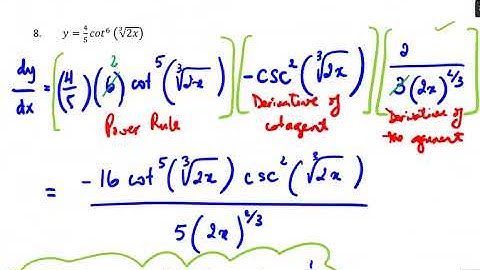 8. y = 4/5 cot⁶ (∛2x)
dy/dx = [(4/5)(6)² cot⁵(∛2x)] [-csc²(∛2x)] [2 / 3(2x)^2/3]
Power Rule
Derivative of cotagent
Derivative of the argument
= -16 cot⁵(∛2x) csc²(∛2x) / 5(2x)^2/3